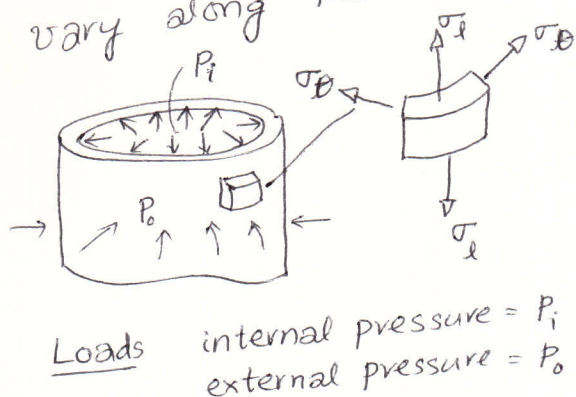 vary along
Pi
σθ
σl
σθ
Po
σl
Loads internal pressure = Pi
external pressure = Po